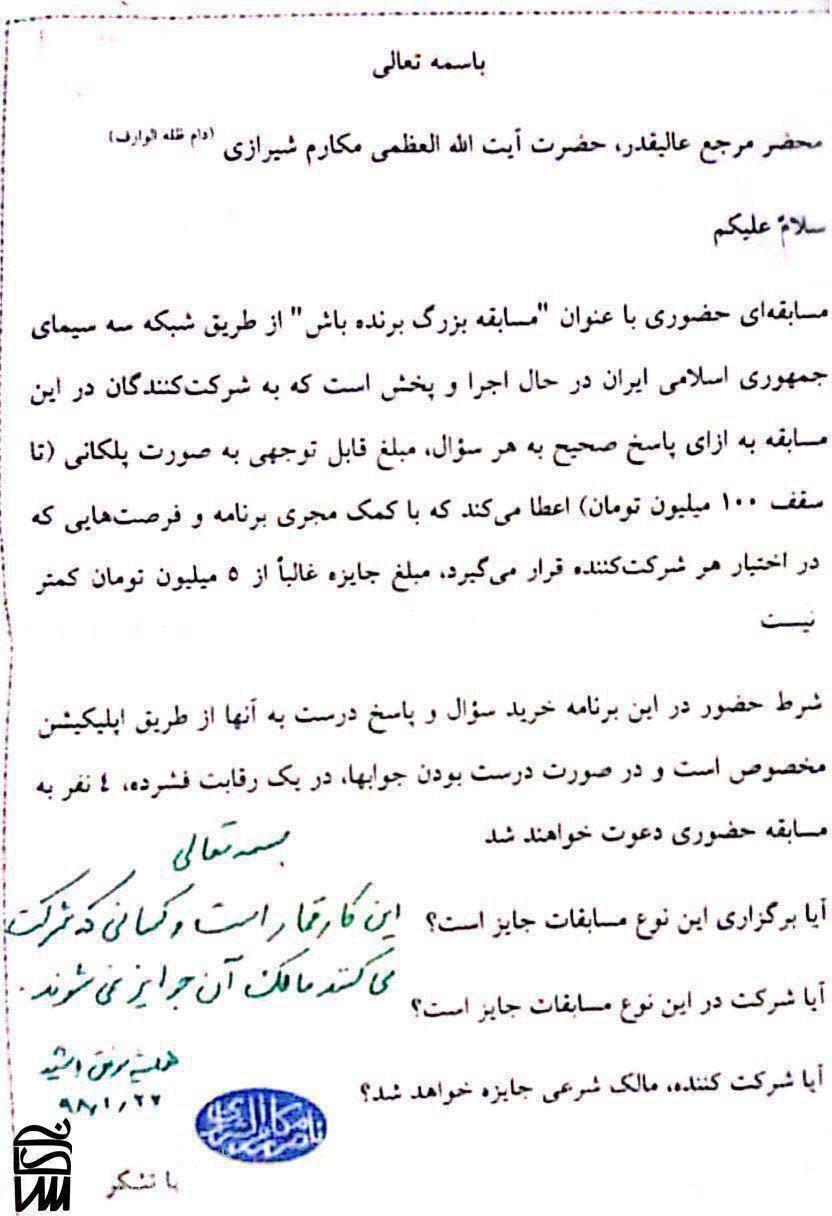 باسمه تعالی
محضر مرجع عالیقدر، حضرت آیت الله العظمی مکارم شیرازی (دام ظله الوارف)
سلامٌ علیکم
مسابقه‌ای حضوری با عنوان "مسابقه بزرگ برنده باش" از طریق شبکه سه سیمای
جمهوری اسلامی ایران در حال اجرا و پخش است که به شرکت‌کنندگان در این
مسابقه به ازای پاسخ صحیح به هر سؤال، مبلغ قابل توجهی به صورت پلکانی (تا
سقف ۱۰۰ میلیون تومان) اعطا می‌کند که با کمک مجری برنامه و فرصت‌هایی که
در اختیار هر شرکت‌کننده قرار می‌گیرد، مبلغ جایزه غالباً از ۵ میلیون تومان کمتر
نیست
شرط حضور در این برنامه خرید سؤال و پاسخ درست به آنها از طریق اپلیکیشن
مخصوص است و در صورت درست بودن جوابها، در یک رقابت فشرده، ٤ نفر به
مسابقه حضوری دعوت خواهند شد
آیا برگزاری این نوع مسابقات جایز است؟
آیا شرکت در این نوع مسابقات جایز است؟
آیا شرکت کننده، مالک شرعی جایزه خواهد شد؟
با تشکر
بسمه تعالی
این کار قمار است و کسانی که شرکت
می کنند مالک آن جوایز نمی شوند.
همیشه موفق باشید
۹۸/۱/۲۷
ناصر مکارم الشیرازی